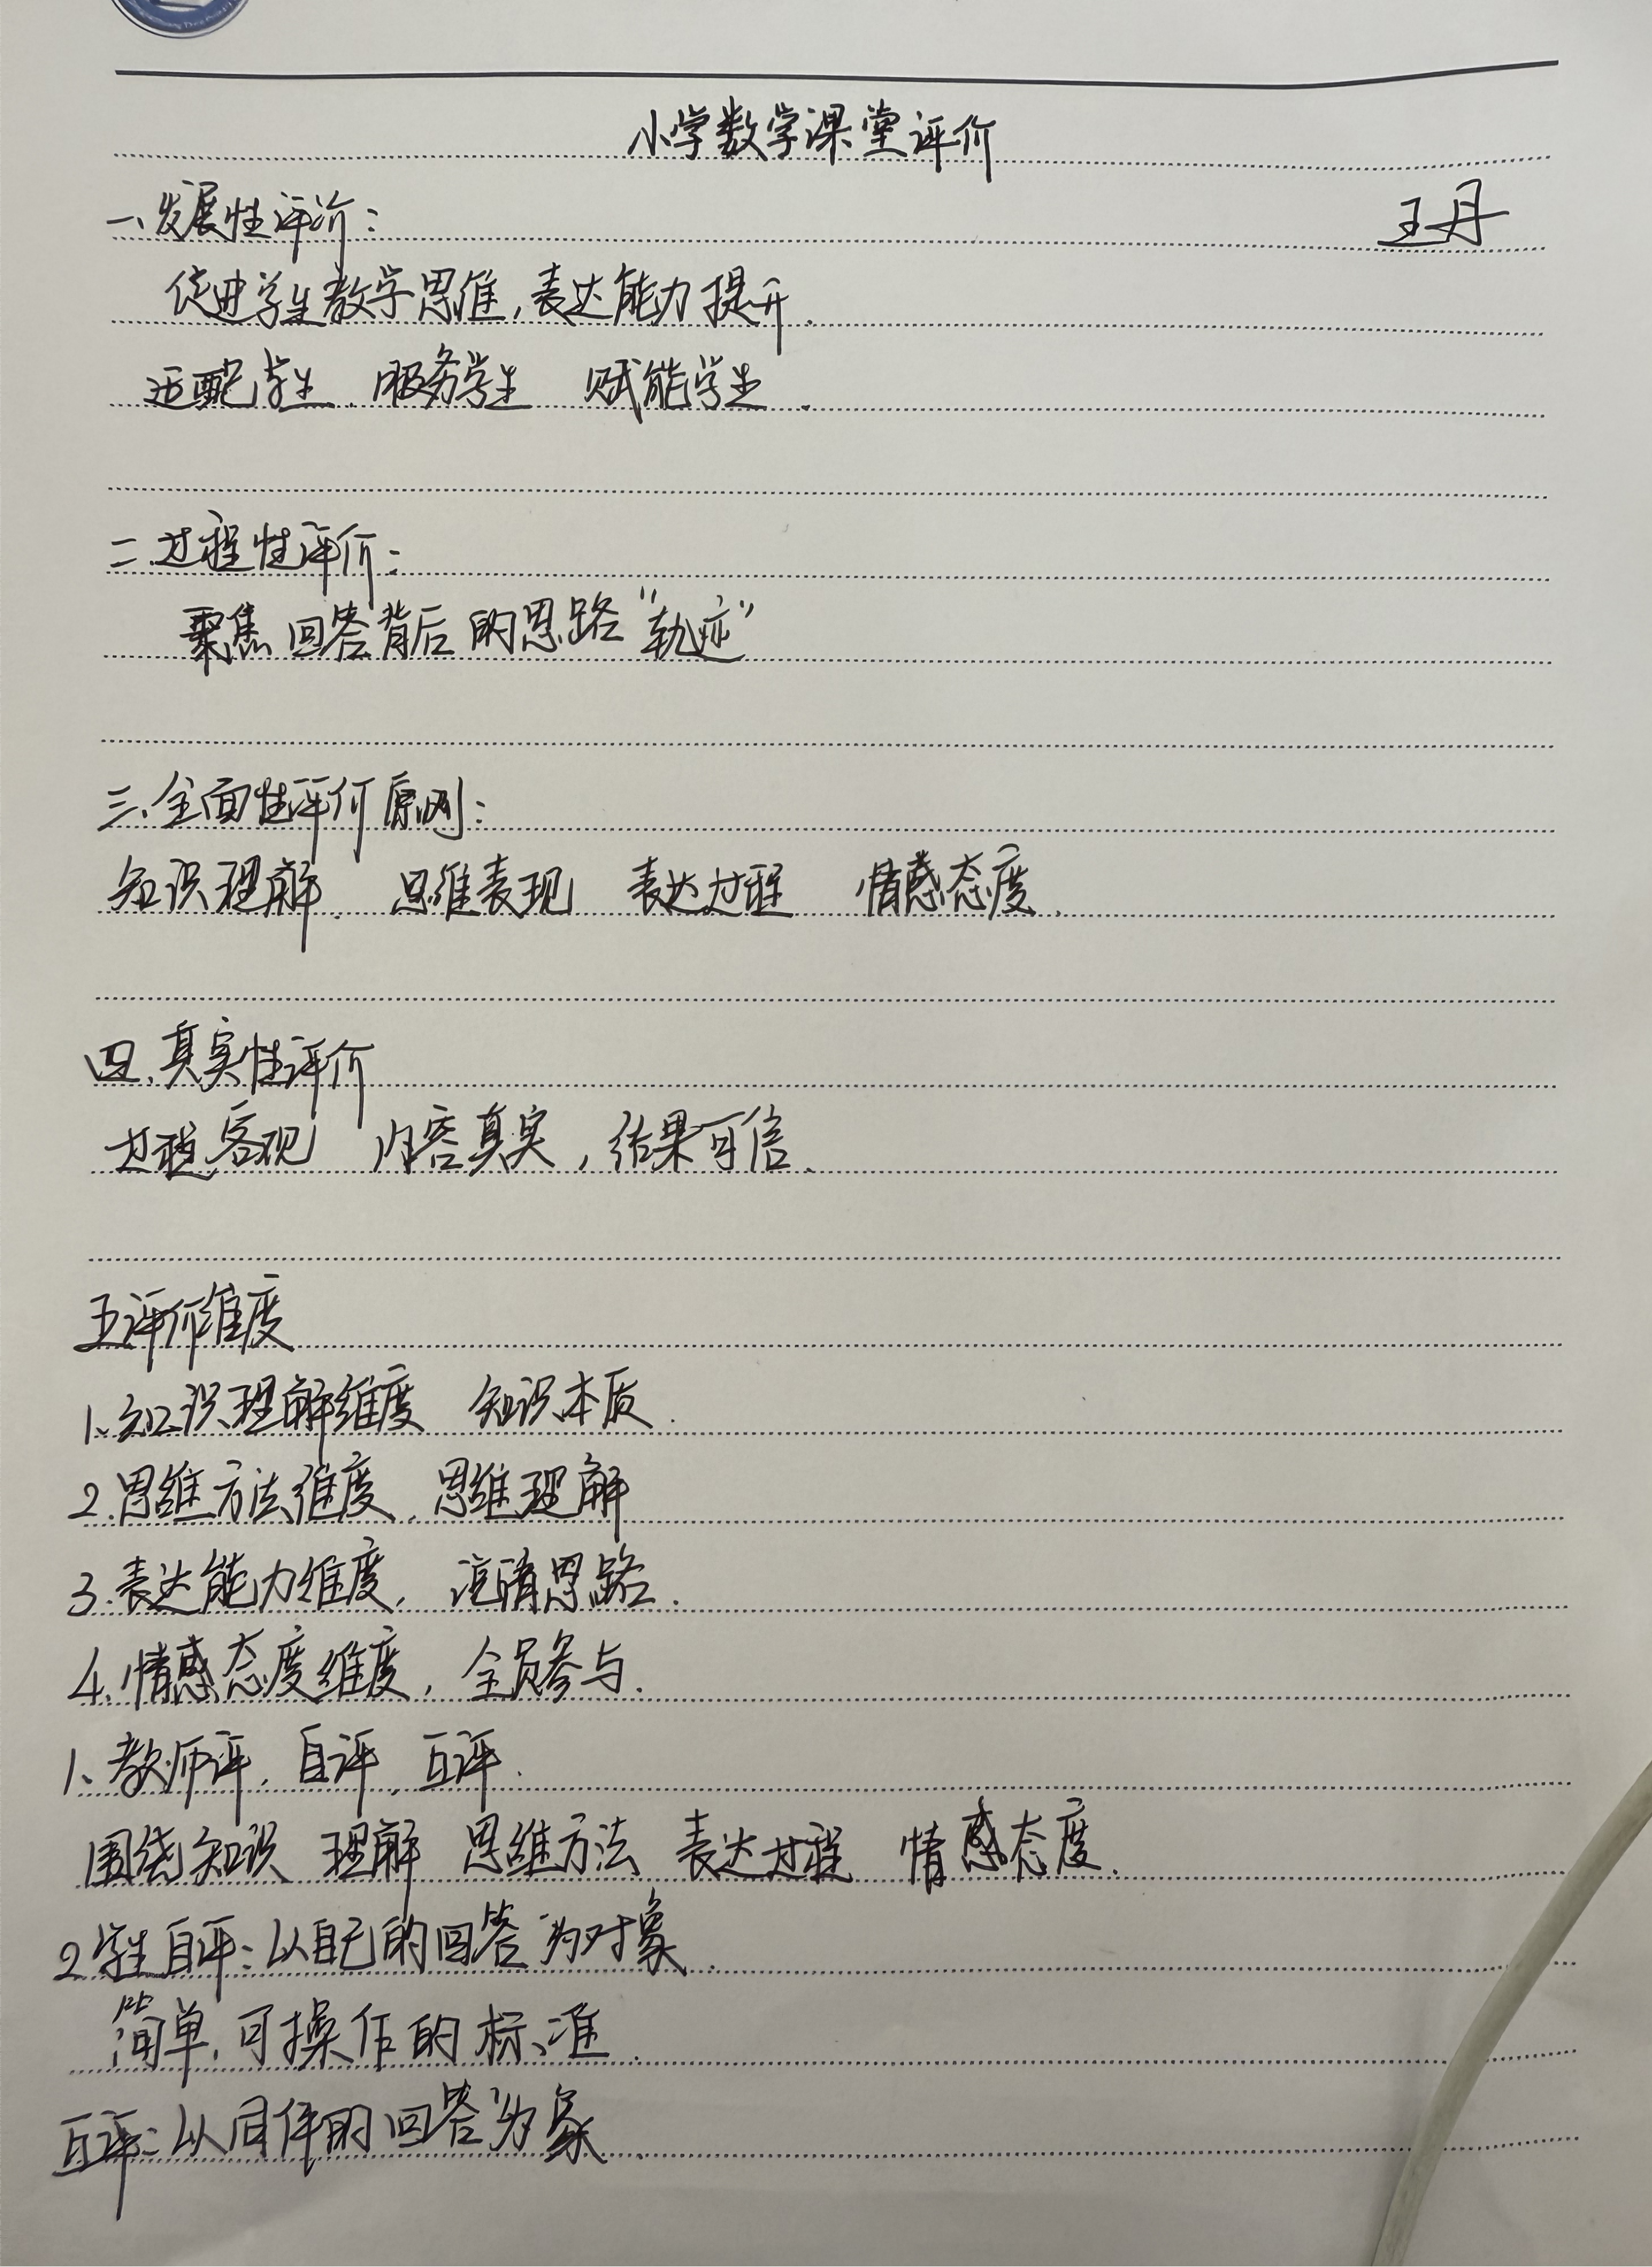 小学数学课堂评价
一、发展性评价：
王丹
促进学生数学思维，表达能力提升.
适配学生. 服务学生 赋能学生.
二.过程性评价：
聚焦回答背后的思路“轨迹”
三、全面性评价原则：
知识理解. 思维表现 表达过程 情感态度.
四.真实性评价
过程客观 内容真实，结果可信.
五评价维度
1、知识理解维度 知识本质.
2.思维方法维度. 思维理解
3.表达能力维度， 说清思路.
4.情感态度维度，全员参与.
1、教师评，自评，互评.
围绕知识 理解 思维方法 表达过程 情感态度.
2学生自评：以自己的回答为对象.
简单，可操作的标准.
互评：以同伴的回答为象.